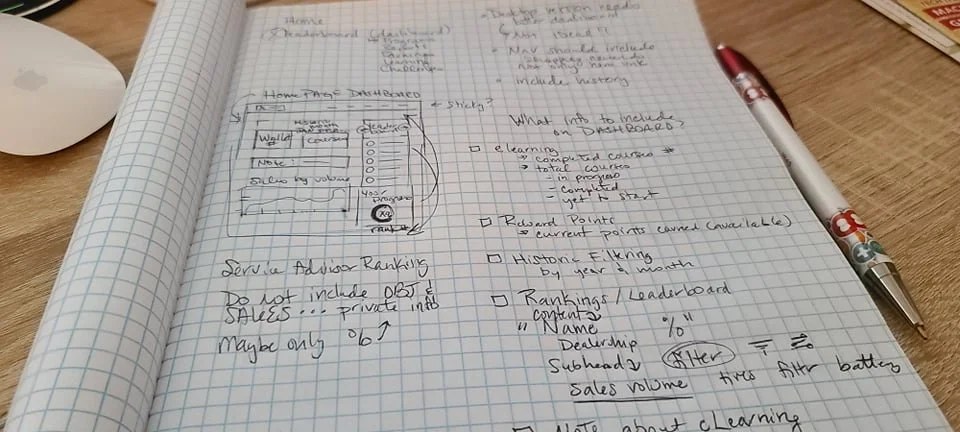 Home
Leaderboard (dashboard)
Programs
Learning
Challenges
HOME PAGE DASHBOARD
← Sticky?
Wallet
Courses
Note:
Sales by volume
Your
Program
rank
Service Advisor Ranking
Do not include OBJ &
SALES ... private info
maybe only % ↑
Desktop version
dashboard
• Nav should include
• include history
What info to include
on DASHBOARD
□ eLearning
→ completed courses #
→ total courses
- in progress
- completed
- yet to start
□ Reward Points
→ current points earned (available)
□ Historic Filtering
by year & month
□ Rankings/Leaderboard
content
" Name %"
Dealership
Subhead filter
Sales volume tires filtr battery
□ Note about eLearning